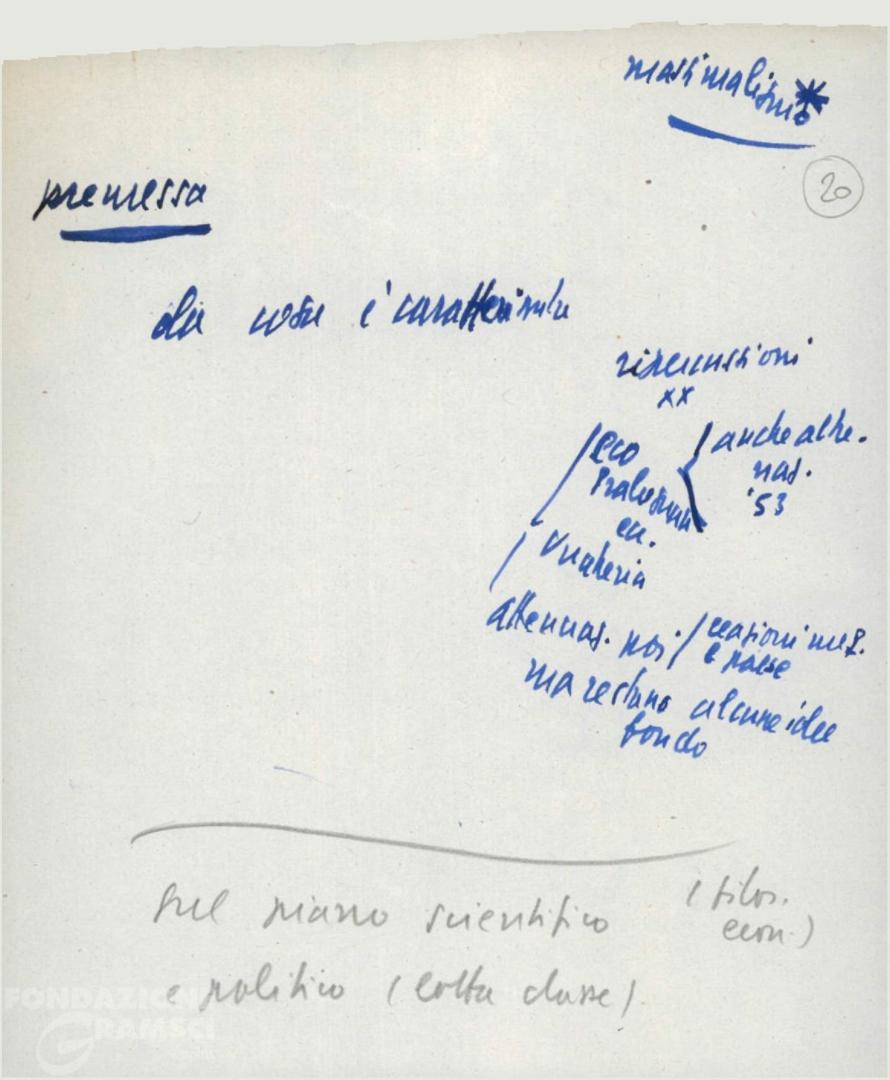 massimalismo*
20
premessa
da cosa è caratterizzato
ripercussioni
xx
eco
anche altre
naz.
'53
Ungheria
attenuaz. poi / reazioni
e paese
ma restano alcune idee
fondo
sul piano scientifico (filos.
econ.)
e politico (lotta classe).
FONDAZIONE
GRAMSCI